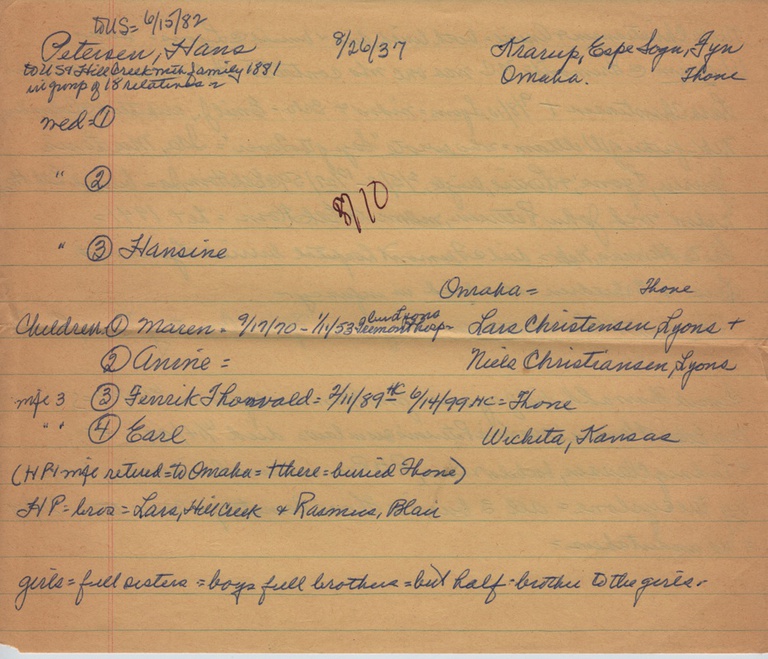 to US = 6/15/82
Petersen, Hans 8/26/37 Krarup, Espe Sogn, Fyn
to USA Hill Creek with family 1881 Omaha. Thone
in group of 18 relatives =
wed = ①
" ②
8/10
" ③ Hansine
Omaha = Thone
Children ① Maren = 9/17/70 - 1/11/53 = Fremont hosp - Lars Christensen, Lyons +
burd Lyons
② Anine = Niels Christiansen, Lyons
wife 3 ③ Fenrik Thorvald = 2/11/89 HC 6/14/99 HC = Thone
" " ④ Earl Wichita, Kansas
(HP + wife retired = to Omaha = + there = buried Thone)
HP = bros = Lars, Hill Creek & Rasmus, Blair
girls = full sisters = boys full brothers = but half-brother to the girls -